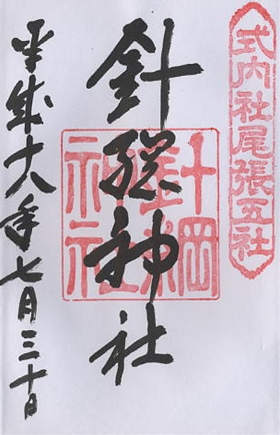 式内社尾張五社
針綱神社
針綱神社
平成十八年七月三十日